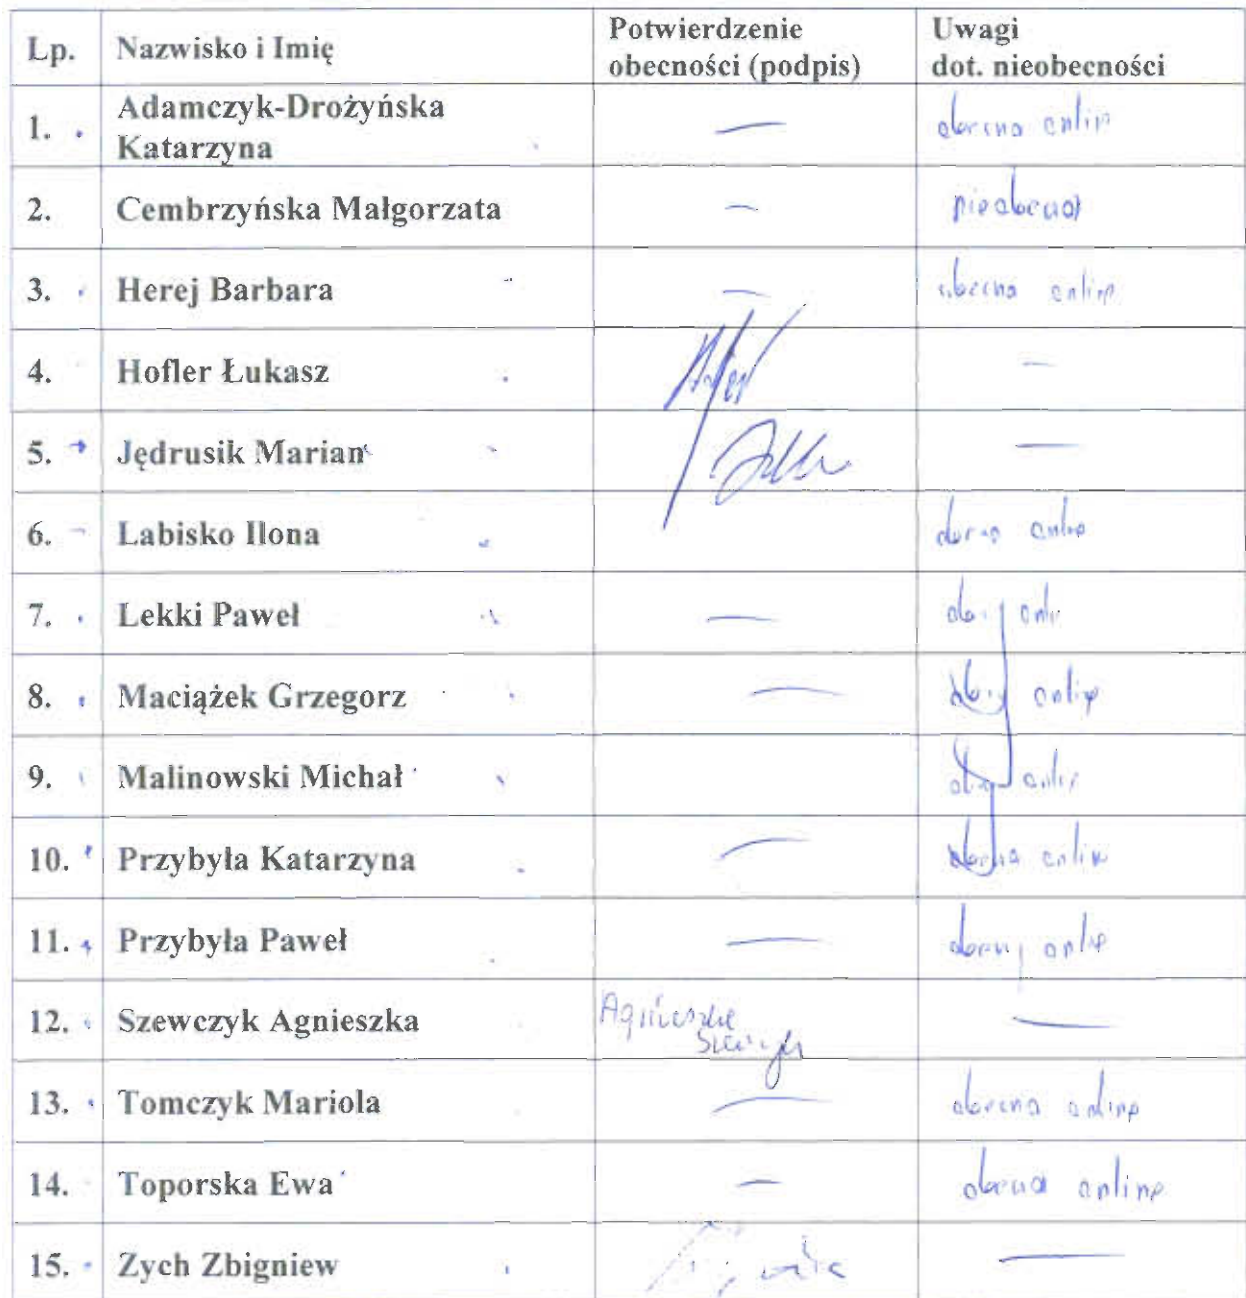 Lp. Nazwisko i Imię Potwierdzenie obecności (podpis) Uwagi dot. nieobecności
1. Adamczyk-Drożyńska Katarzyna — obecna online
2. Cembrzyńska Małgorzata — nieobecna
3. Herej Barbara — obecna online
4. Hofler Łukasz —
5. Jędrusik Marian —
6. Labisko Ilona obecna online
7. Lekki Paweł — obecny online
8. Maciążek Grzegorz — obecny online
9. Malinowski Michał obecny online
10. Przybyła Katarzyna — obecna online
11. Przybyła Paweł — obecny online
12. Szewczyk Agnieszka Agnieszka Szewczyk —
13. Tomczyk Mariola — obecna online
14. Toporska Ewa — obecna online
15. Zych Zbigniew —